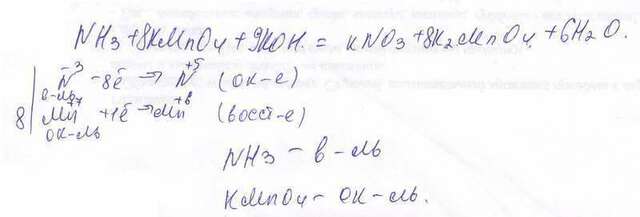 NH3 + 8KMnO4 + 9KOH = KNO3 + 8K2MnO4 + 6H2O.
-3 +5
N -8ē → N (ок-е)
в-ль +7 +6
8 Mn +1ē → Mn (восст-е)
ок-ль
NH3 - в-ль
KMnO4 - ок-ль.